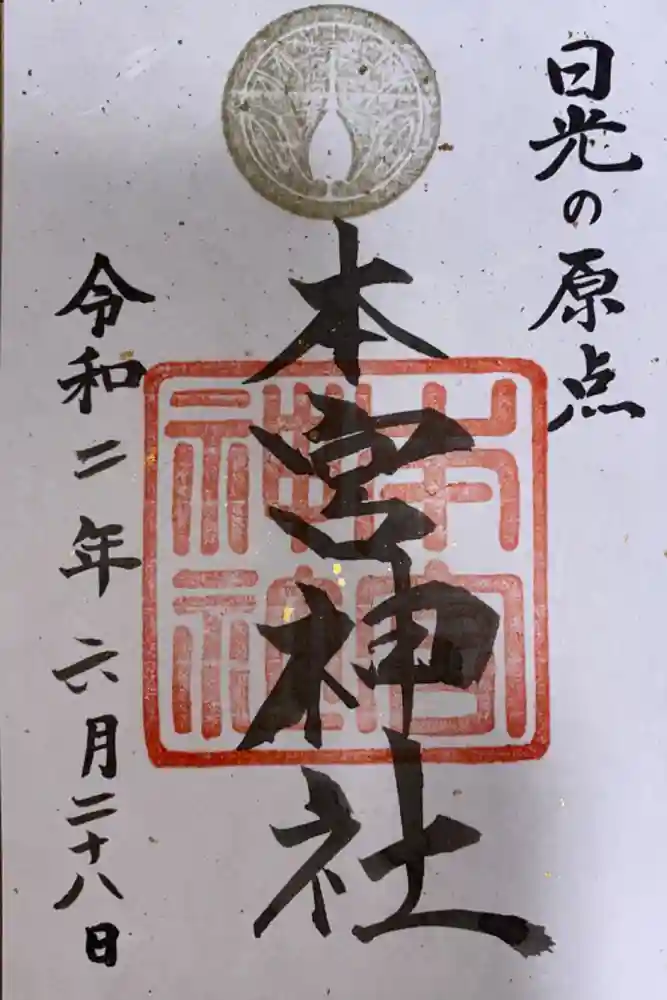 日光の原点
本宮神社
令和二年六月二十八日